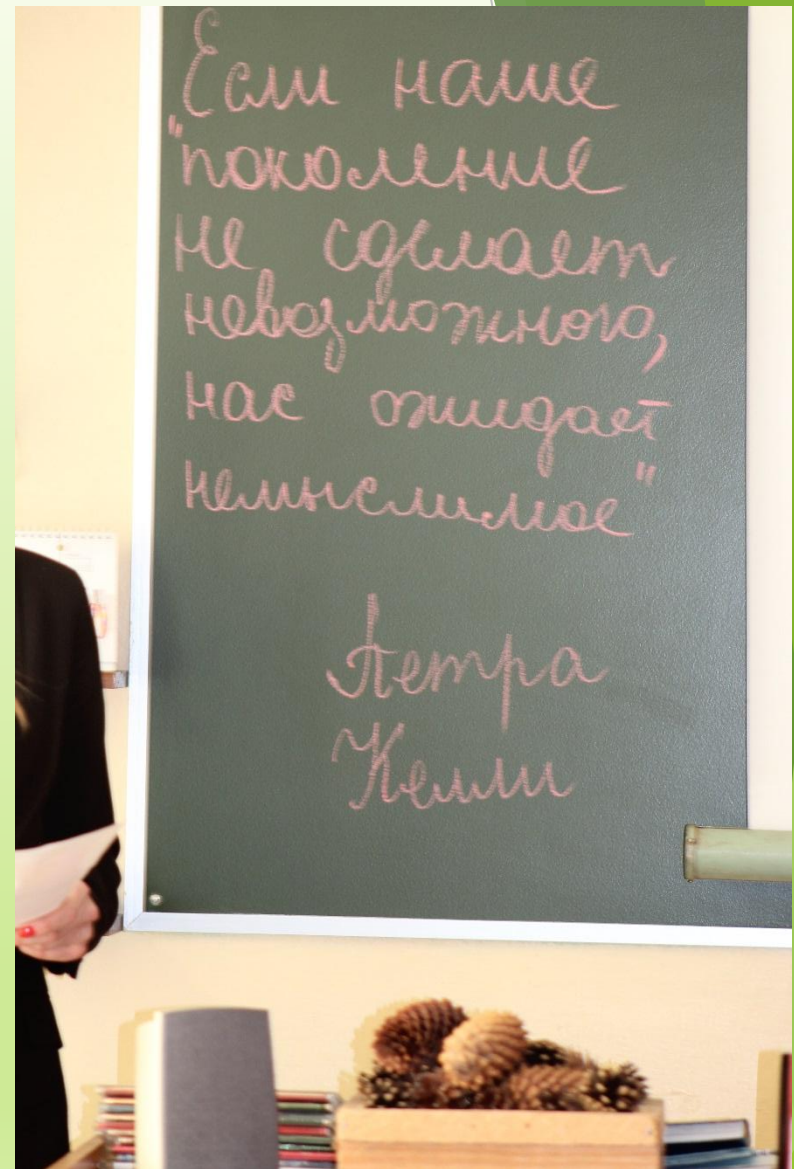 Если наше
"поколение
не сделает
невозможного,
нас ожидает
немыслимое"
Петра
Келли